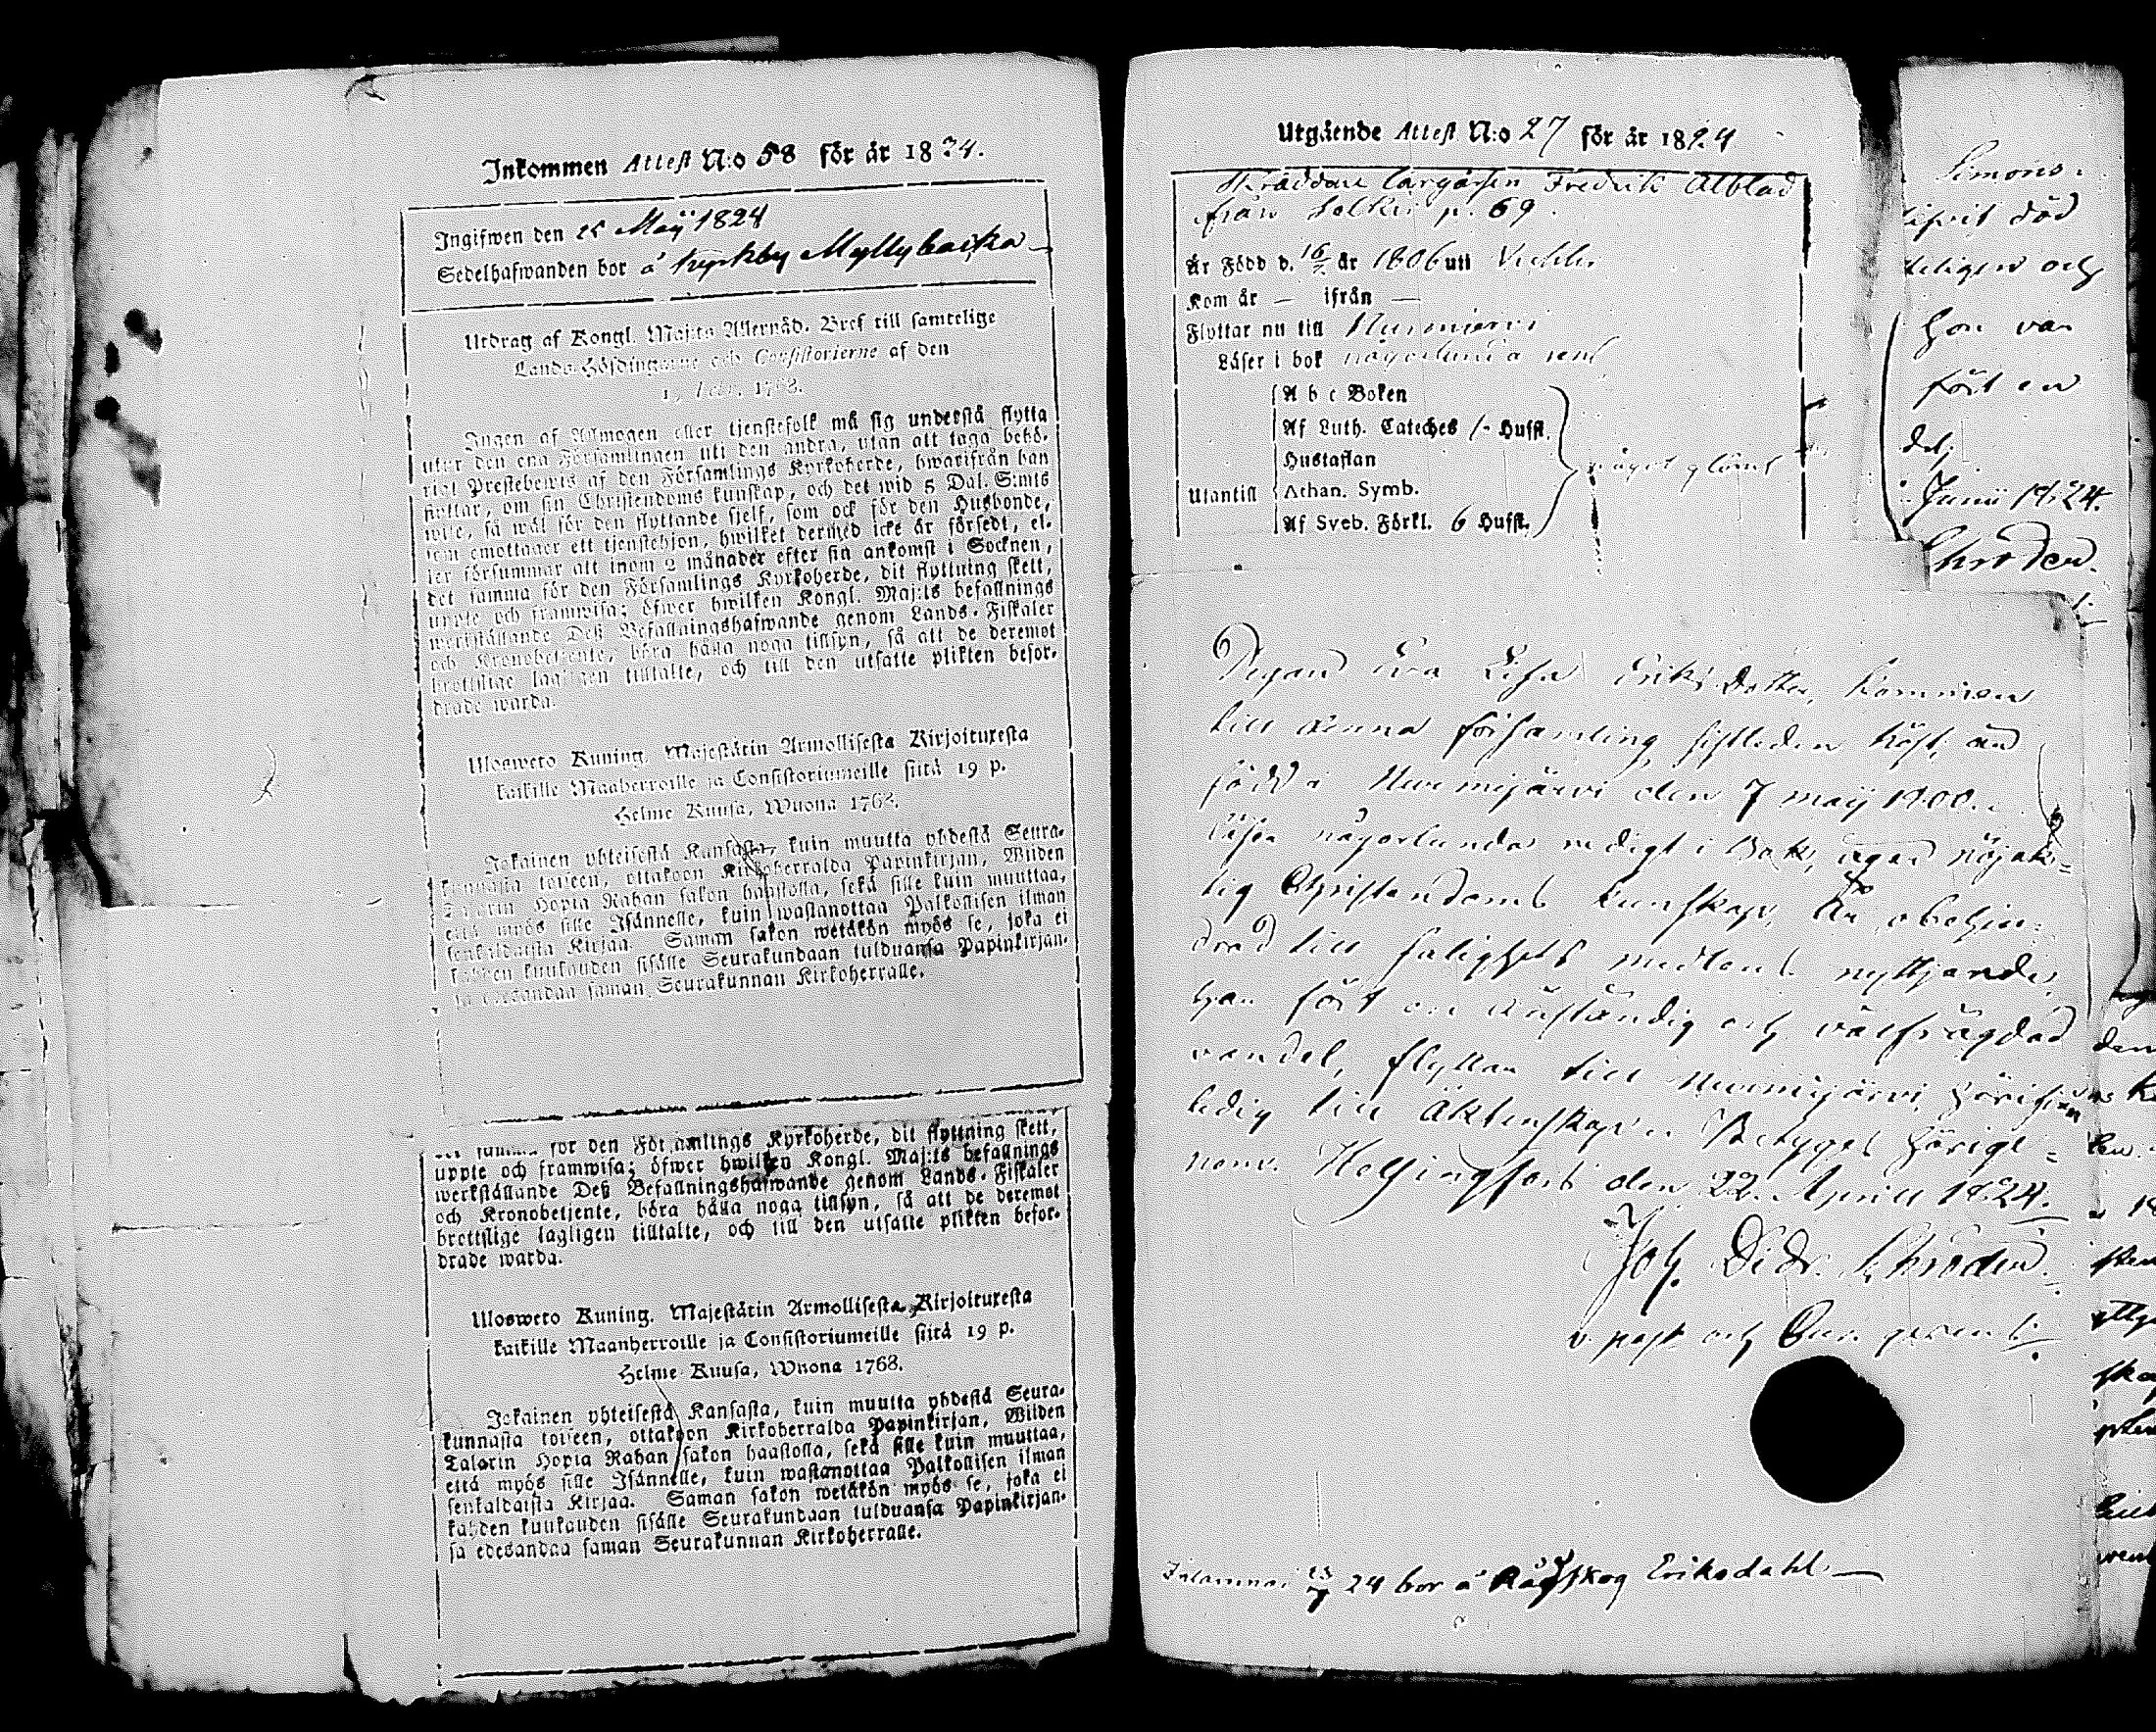 Inkommen Attest N:o 58 för år 1824.
Ingifwen den 25 Maij 1824
Sedelhafwanden bor å Kyrkby Myllybacka
Utdrag af Kongl. Maj:ts Allernåd. Bref till samtelige
Lands-Höfdingarne och Consistorierne af den
19 Febr. 1768.
Ingen af Allmogen eller tjenstefolk må sig understå flytta
utur den ena Församlingen uti den andra, utan att taga behö-
rigt Prestebewis af den Församlings Kyrkoherde, hwarifrån han
flyttar, om sin Christendoms kunskap, och det wid 5 Dal. S:mts
wite, så wäl för den flyttande sjelf, som ock för den Husbonde,
som emottager ett tjenstehjon, hwilket dermed icke är försedt, el-
ler försummar att inom 2 månader efter sin ankomst i Socknen,
det samma för den Församlings Kyrkoherde, dit flyttning skett,
uppte och framwisa; öfwer hwilken Kongl. Maj:ts befallnings
werkställande Deß Befallningshafwande genom Lands-Fiskaler
och Kronobetjente, böra hålla noga tillsyn, så att de deremot
brottslige lagligen tilltalte, och till den utsatte plikten befor-
drade warda.
Uloswero Kuning. Majestätin Armollisesta Kirjoituxesta
kaikille Maaherroille ja Consistoriumeille siitä 19 p.
Helme Kuusa, Wuona 1768.
Jokainen yhteisestä Kansasta, kuin muutta yhdestä Seura-
kunnasta toiseen, ottakoon Kirkoherralda Papinkirjan, Wiiden
Talarin Hopia Rahan sakon haastolla, sekä sille kuin muuttaa,
että myös sille Isännelle, kuin wastanottaa Palkollisen ilman
senkaldaista Kirjaa. Saman sakon wetäkön myös se, joka ei
kahden kuukauden sisälle Seurakundaan tulduansa Papinkirjan-
sa edesandaa saman Seurakunnan Kirkoherralle.
för den Församlings Kyrkoherde, dit flyttning skett,
uppte och framwisa; öfwer hwilken Kongl. Maj:ts befallnings
werkställande Deß Befallningshafwande genom Lands-Fiskaler
och Kronobetjente, böra hålla noga tillsyn, så att de deremot
brottslige lagligen tilltalte, och till den utsatte plikten befor-
drade warda.
Uloswero Kuning. Majestätin Armollisesta Kirjoituxesta
kaikille Maanherroille ja Consistoriumeille siitä 19 p.
Helme-Kuusa, Wuona 1768.
Jokainen yhteisestä Kansasta, kuin muutta yhdestä Seura-
kunnasta toiseen, ottakoon Kirkoherralda Papinkirjan, Wiiden
Talarin Hopia Rahan sakon haastolla, sekä sille kuin muuttaa,
että myös sille Isännelle, kuin wastanottaa Palkollisen ilman
senkaldaista Kirjaa. Saman sakon wetäkön myös se, joka ei
kahden kuukauden sisälle Seurakundaan tulduansa Papinkirjan-
sa edesandaa saman Seurakunnan Kirkoherralle.
Utgående Attest N:o 27 för år 1824
Skräddare Fredrik Alblad
från p. 69.
Är Född d. 16/7 år 1806 uti Vichtis
Kom år — ifrån —
Flyttar nu till Nurmijervi
Läser i bok någorlunda rent
A b c Boken
Af Luth. Cateches /- Hufst.
Hustaflan
Utantill Athan. Symb.
Af Sveb. Förkl. 6 Hufst.
något glömt
Pigan Eva Lisa Eriksdotter, kommen
till denna församling sistleden höst, är
född i Nurmijärvi den 7 maij 1800.
läser någorlunda redigt i Bok, äger nöjak-
tig Christendoms kunskap, är obehin-
drad till salighets medlens nyttjande,
har fört en anständig och välfrägdad
vandel, flyttar till Nurmijärvi härifrån
ledig till Äktenskap. Betygas härige-
nom. Helsingfors den 22. Aprill 1824.
Joh. Didr. Chroden.
v. past. och
bor å Rå skog Eriksdahl.
Simons.
död
och
hon var
fört en
del.
Junii 1824.
Chroden.